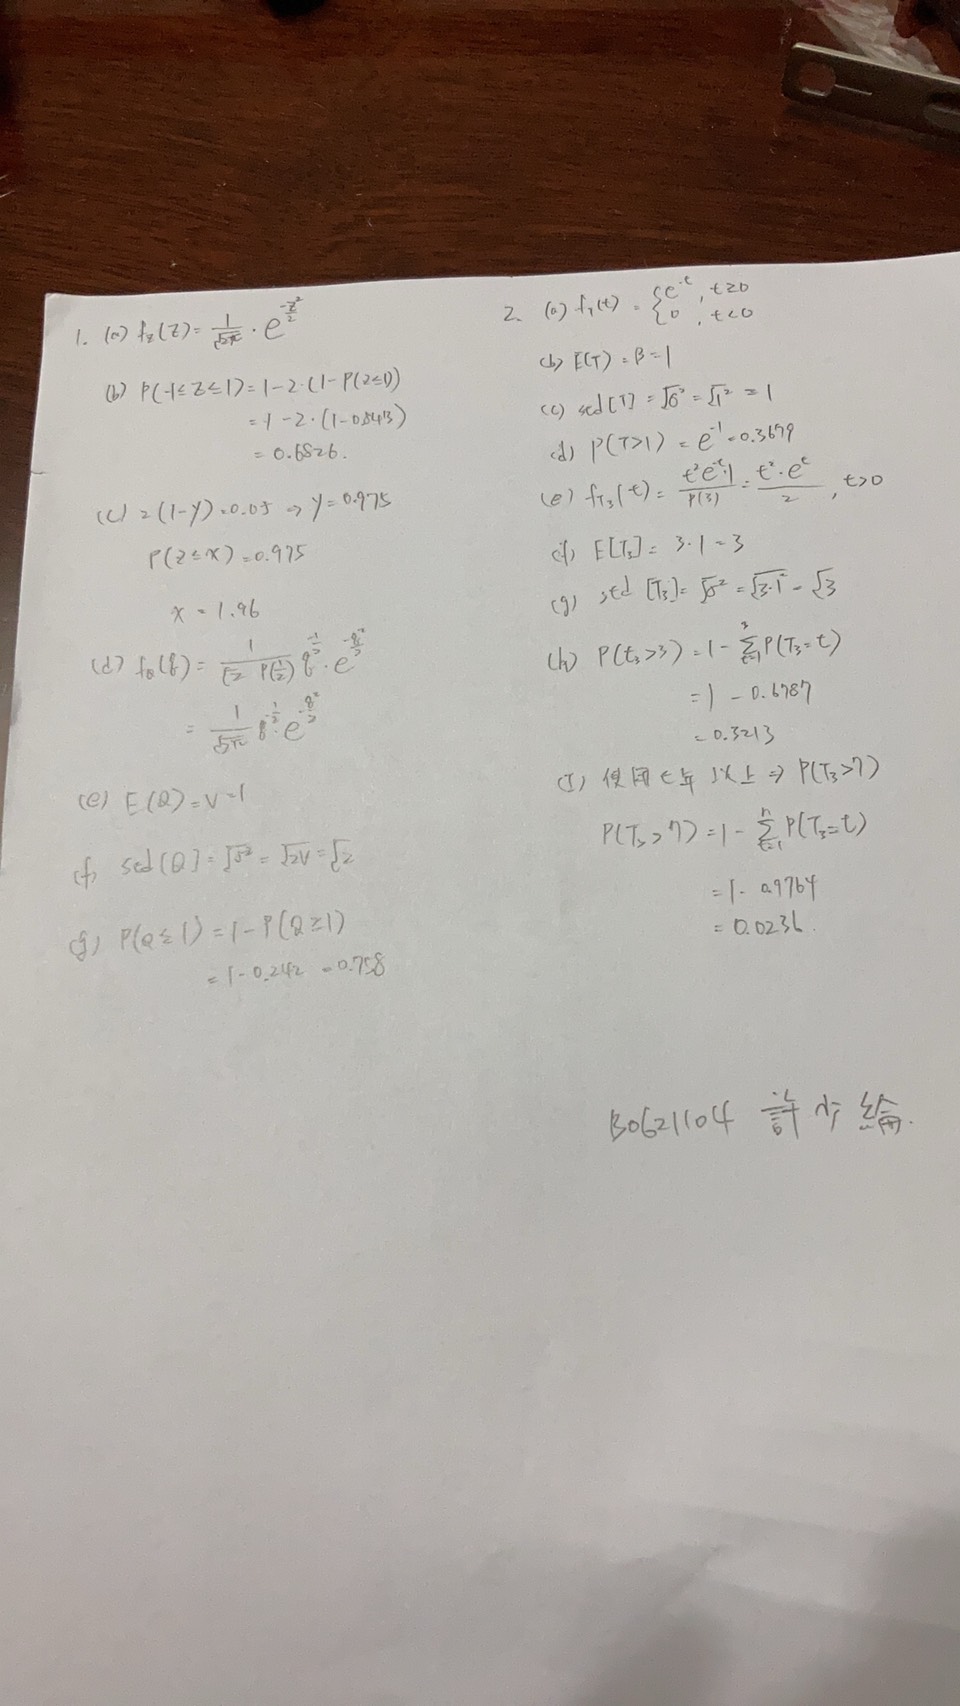 1. (a) f_Z(z) = 1/√2π · e^(-z²/2)
(b) P(-1≤Z≤1) = 1-2·(1-P(Z≤1))
= 1-2·(1-0.8413)
= 0.6826.
(c) 2(1-y)=0.05 → y=0.975
P(Z≤x)=0.975
x = 1.96
(d) f_Q(q) = 1/(√2 Γ(1/2)) q^(-1/2) · e^(-q/2)
= 1/√2π q^(-1/2) · e^(-q/2)
(e) E(Q)=V=1
(f) std[Q]=√σ²=√2V=√2
(g) P(Q≤1)=1-P(Q≥1)
=1-0.242=0.758
2. (a) f_T(t) = { e^-t, t≥0
0, t<0
(b) E(T)=β=1
(c) std[T]=√σ²=√1²=1
(d) P(T>1)=e^-1=0.3679
(e) f_T3(t)= t²e^-t·1/Γ(3) = t²·e^t/2, t>0
(f) E[T3]= 3·1=3
(g) std[T3]=√σ²=√3·1²=√3
(h) P(t3>3)=1-Σ_{t=1}^{3} P(T3=t)
=1-0.6787
=0.3213
(I) 使用七年以上 ⇒ P(T3>7)
P(T3>7)=1-Σ_{t=1}^{n} P(T3=t)
=1-0.9764
=0.0236.
B0621104 許 綸.